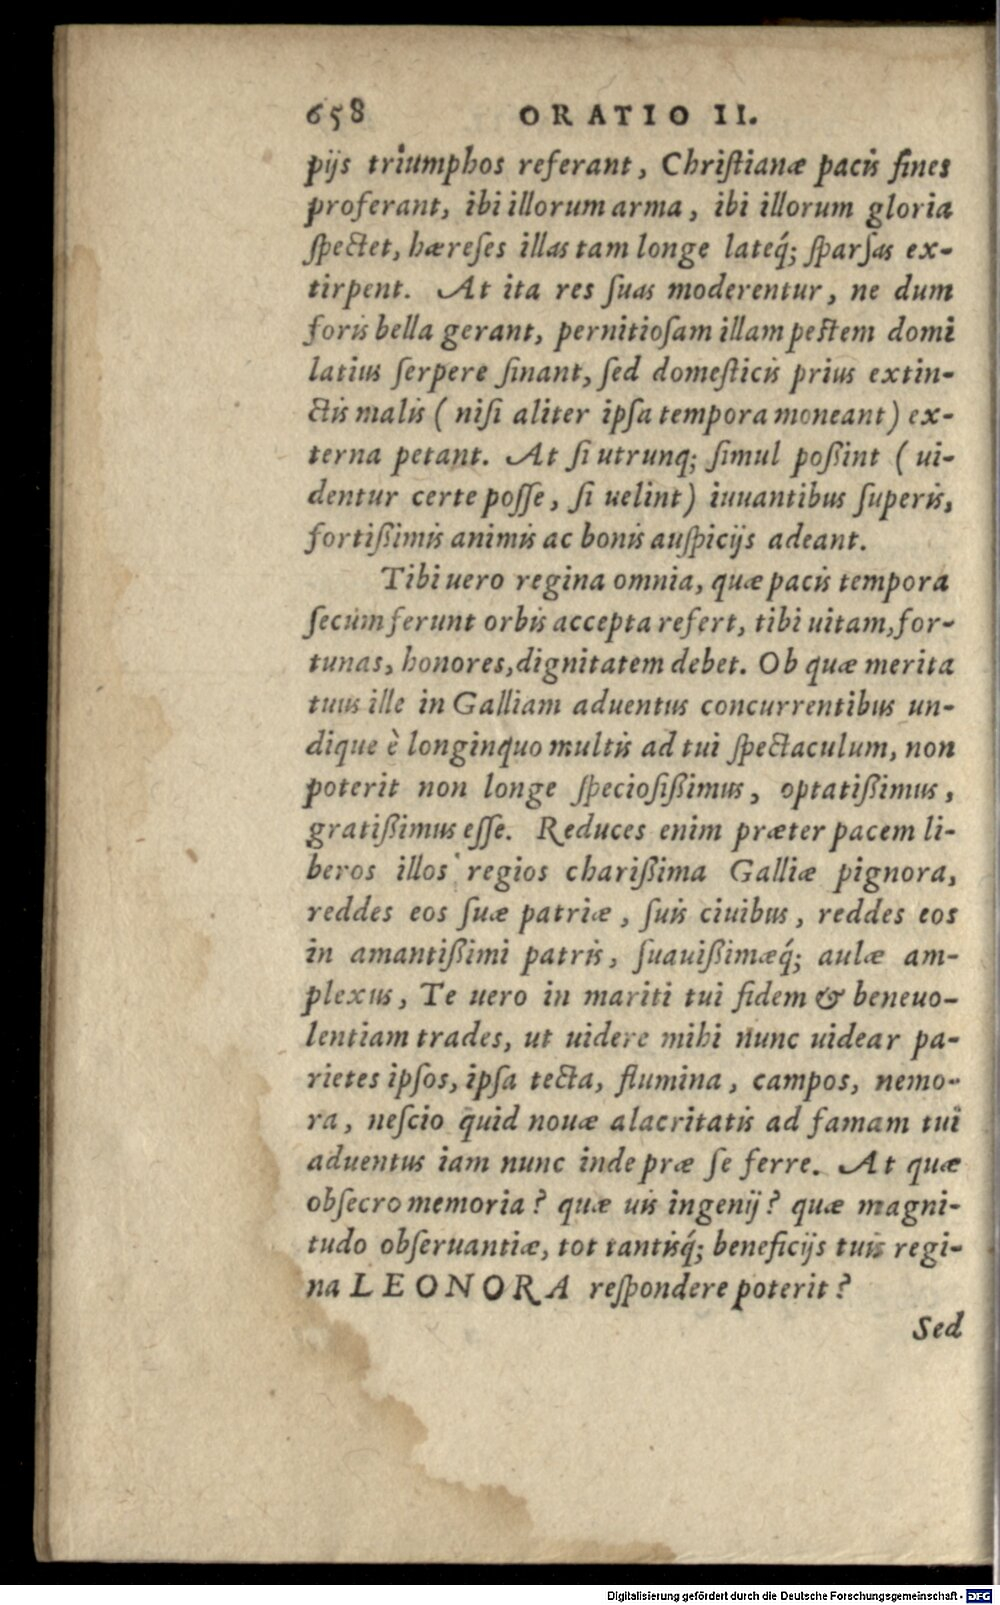 658 ORATIO II.
pijs triumphos referant, Chriſtianæ pacis fines
proferant, ibi illorum arma, ibi illorum gloria
ſpectet, hæreſes illas tam longe lateq́; ſparſas ex-
tirpent. At ita res ſuas moderentur, ne dum
foris bella gerant, pernitioſam illam peſtem domi
latius ſerpere ſinant, ſed domeſticis prius extin-
ctis malis ( niſi aliter ipſa tempora moneant) ex-
terna petant. At ſi utrunq; ſimul poßint ( ui-
dentur certe poſſe, ſi uelint) iuuantibus ſuperis,
fortißimis animis ac bonis auſpicijs adeant.
Tibi uero regina omnia, quæ pacis tempora
ſecum ferunt orbis accepta refert, tibi uitam, for-
tunas, honores, dignitatem debet. Ob quæ merita
tuus ille in Galliam aduentus concurrentibus un-
dique è longinquo multis ad tui ſpectaculum, non
poterit non longe ſpecioſißimus, optatißimus,
gratißimus eſſe. Reduces enim præter pacem li-
beros illos regios charißima Galliæ pignora,
reddes eos ſuæ patriæ, ſuis ciuibus, reddes eos
in amantißimi patris, ſuauißimæq́; aulæ am-
plexus, Te uero in mariti tui fidem & beneuo-
lentiam trades, ut uidere mihi nunc uidear pa-
rietes ipſos, ipſa tecta, flumina, campos, nemo-
ra, neſcio quid nouæ alacritatis ad famam tui
aduentus iam nunc inde præ ſe ferre. At quæ
obſecro memoria? quæ uis ingenij? quæ magni-
tudo obſeruantiæ, tot tantisq́; beneficijs tuis regi-
na LEONORA reſpondere poterit?
Sed
Digitalisierung gefördert durch die Deutsche Forschungsgemeinschaft - DFG